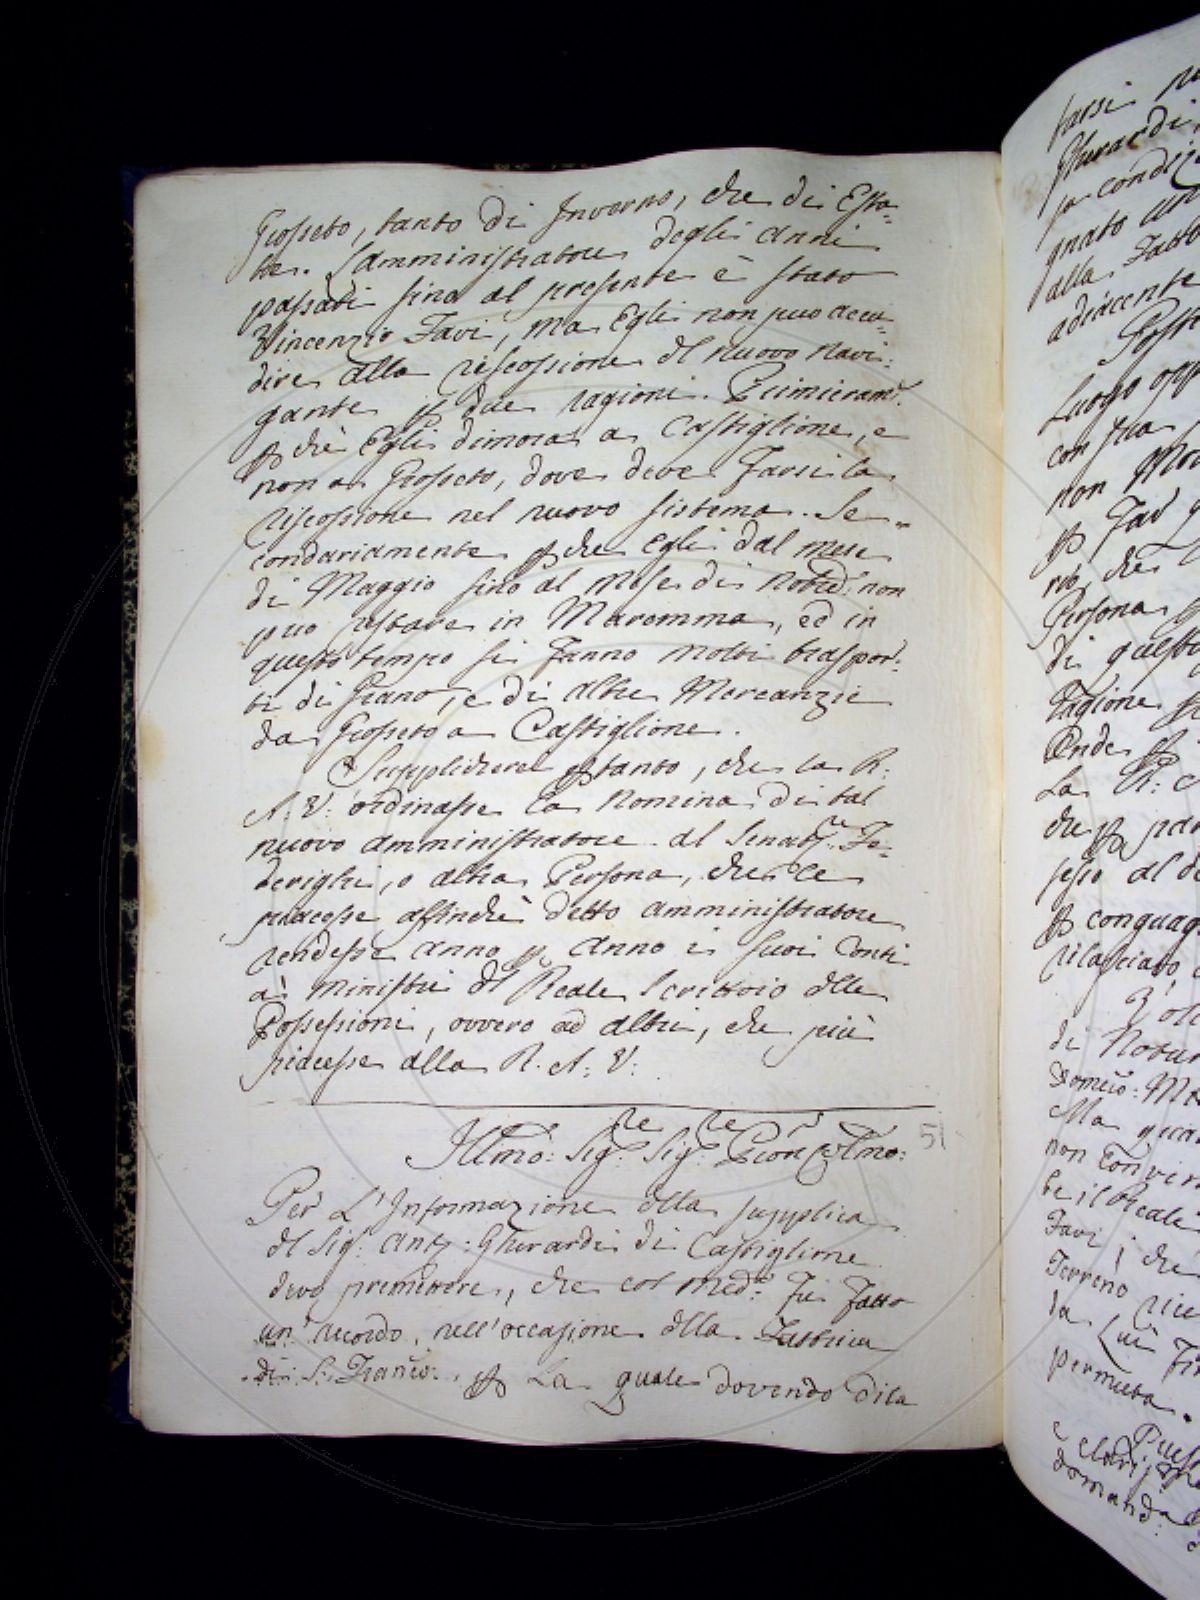 Grosseto, tanto di Inverno, che di Esta-
te. L'amministratore degli anni
passati sino al presente è stato
Vincenzio Favi, ma Egli non può accu-
dire alla riscossione dl nuovo Navi-
gante p due ragioni. Primieramte.
p chè Egli dimora a Castiglione, e
non a Grosseto, dove deve farsi la
riscossione nel nuovo sistema. Se-
condariamente p che Egli dal mese
di Maggio sino al mese di Nobre: non
può restare in Maremma, ed in
questo tempo si fanno molti traspor-
ti di Grano, e di altre Mercanzie
da Grosseto a Castiglione.
Supplichere ptanto, che la R:
A: V: ordinasse la Nomina di tal
nuovo amministratore al Senatre: Fe-
derighi, o altra Persona, che le
piacesse affinchè detto amministratore
rendesse anno p anno i suoi Conti
ai ministri dl Reale Scrittoio dlle
Possessioni, ovvero ad altri, che più
piacesse alla R. A: V:
51
Illmo: Sigre: Sigre:
Per L'Informazione dlla supplica
dl Sig: Anto: Gherardi di Castiglione
devo premettere, che col medmo: fù fatto
un ricordo, nell'occasione dlla Fabbrica
di S: Franco: p La quale dovendo dila
farsi
Gherardi
condiz
gnato
alla Fatto
adiacente
Luogo opp
con sua
non
p Far
rio, che
Persona
di questi
Ragione
Onde p
La R: A
che p
al
p conguag
rilasciato
di Natur
Domco: M
Ma
non convin
te il Reale
Favi, che
Terreno
da Lui
permuta.
domand: